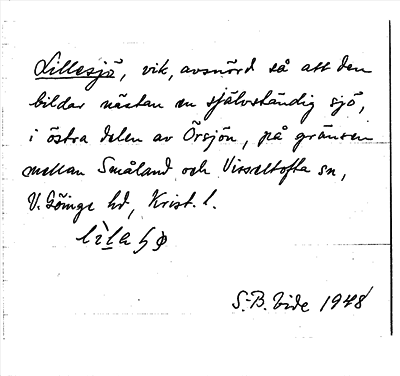 Lillesjö, vik, avsnörd så att den
bildar nästan en självständig sjö,
i östra delen av Örsjön, på gränsen
mellan Småland och Visseltofta sn,
V. Göinge hd, Krist. l.
S.-B. Vide 1948